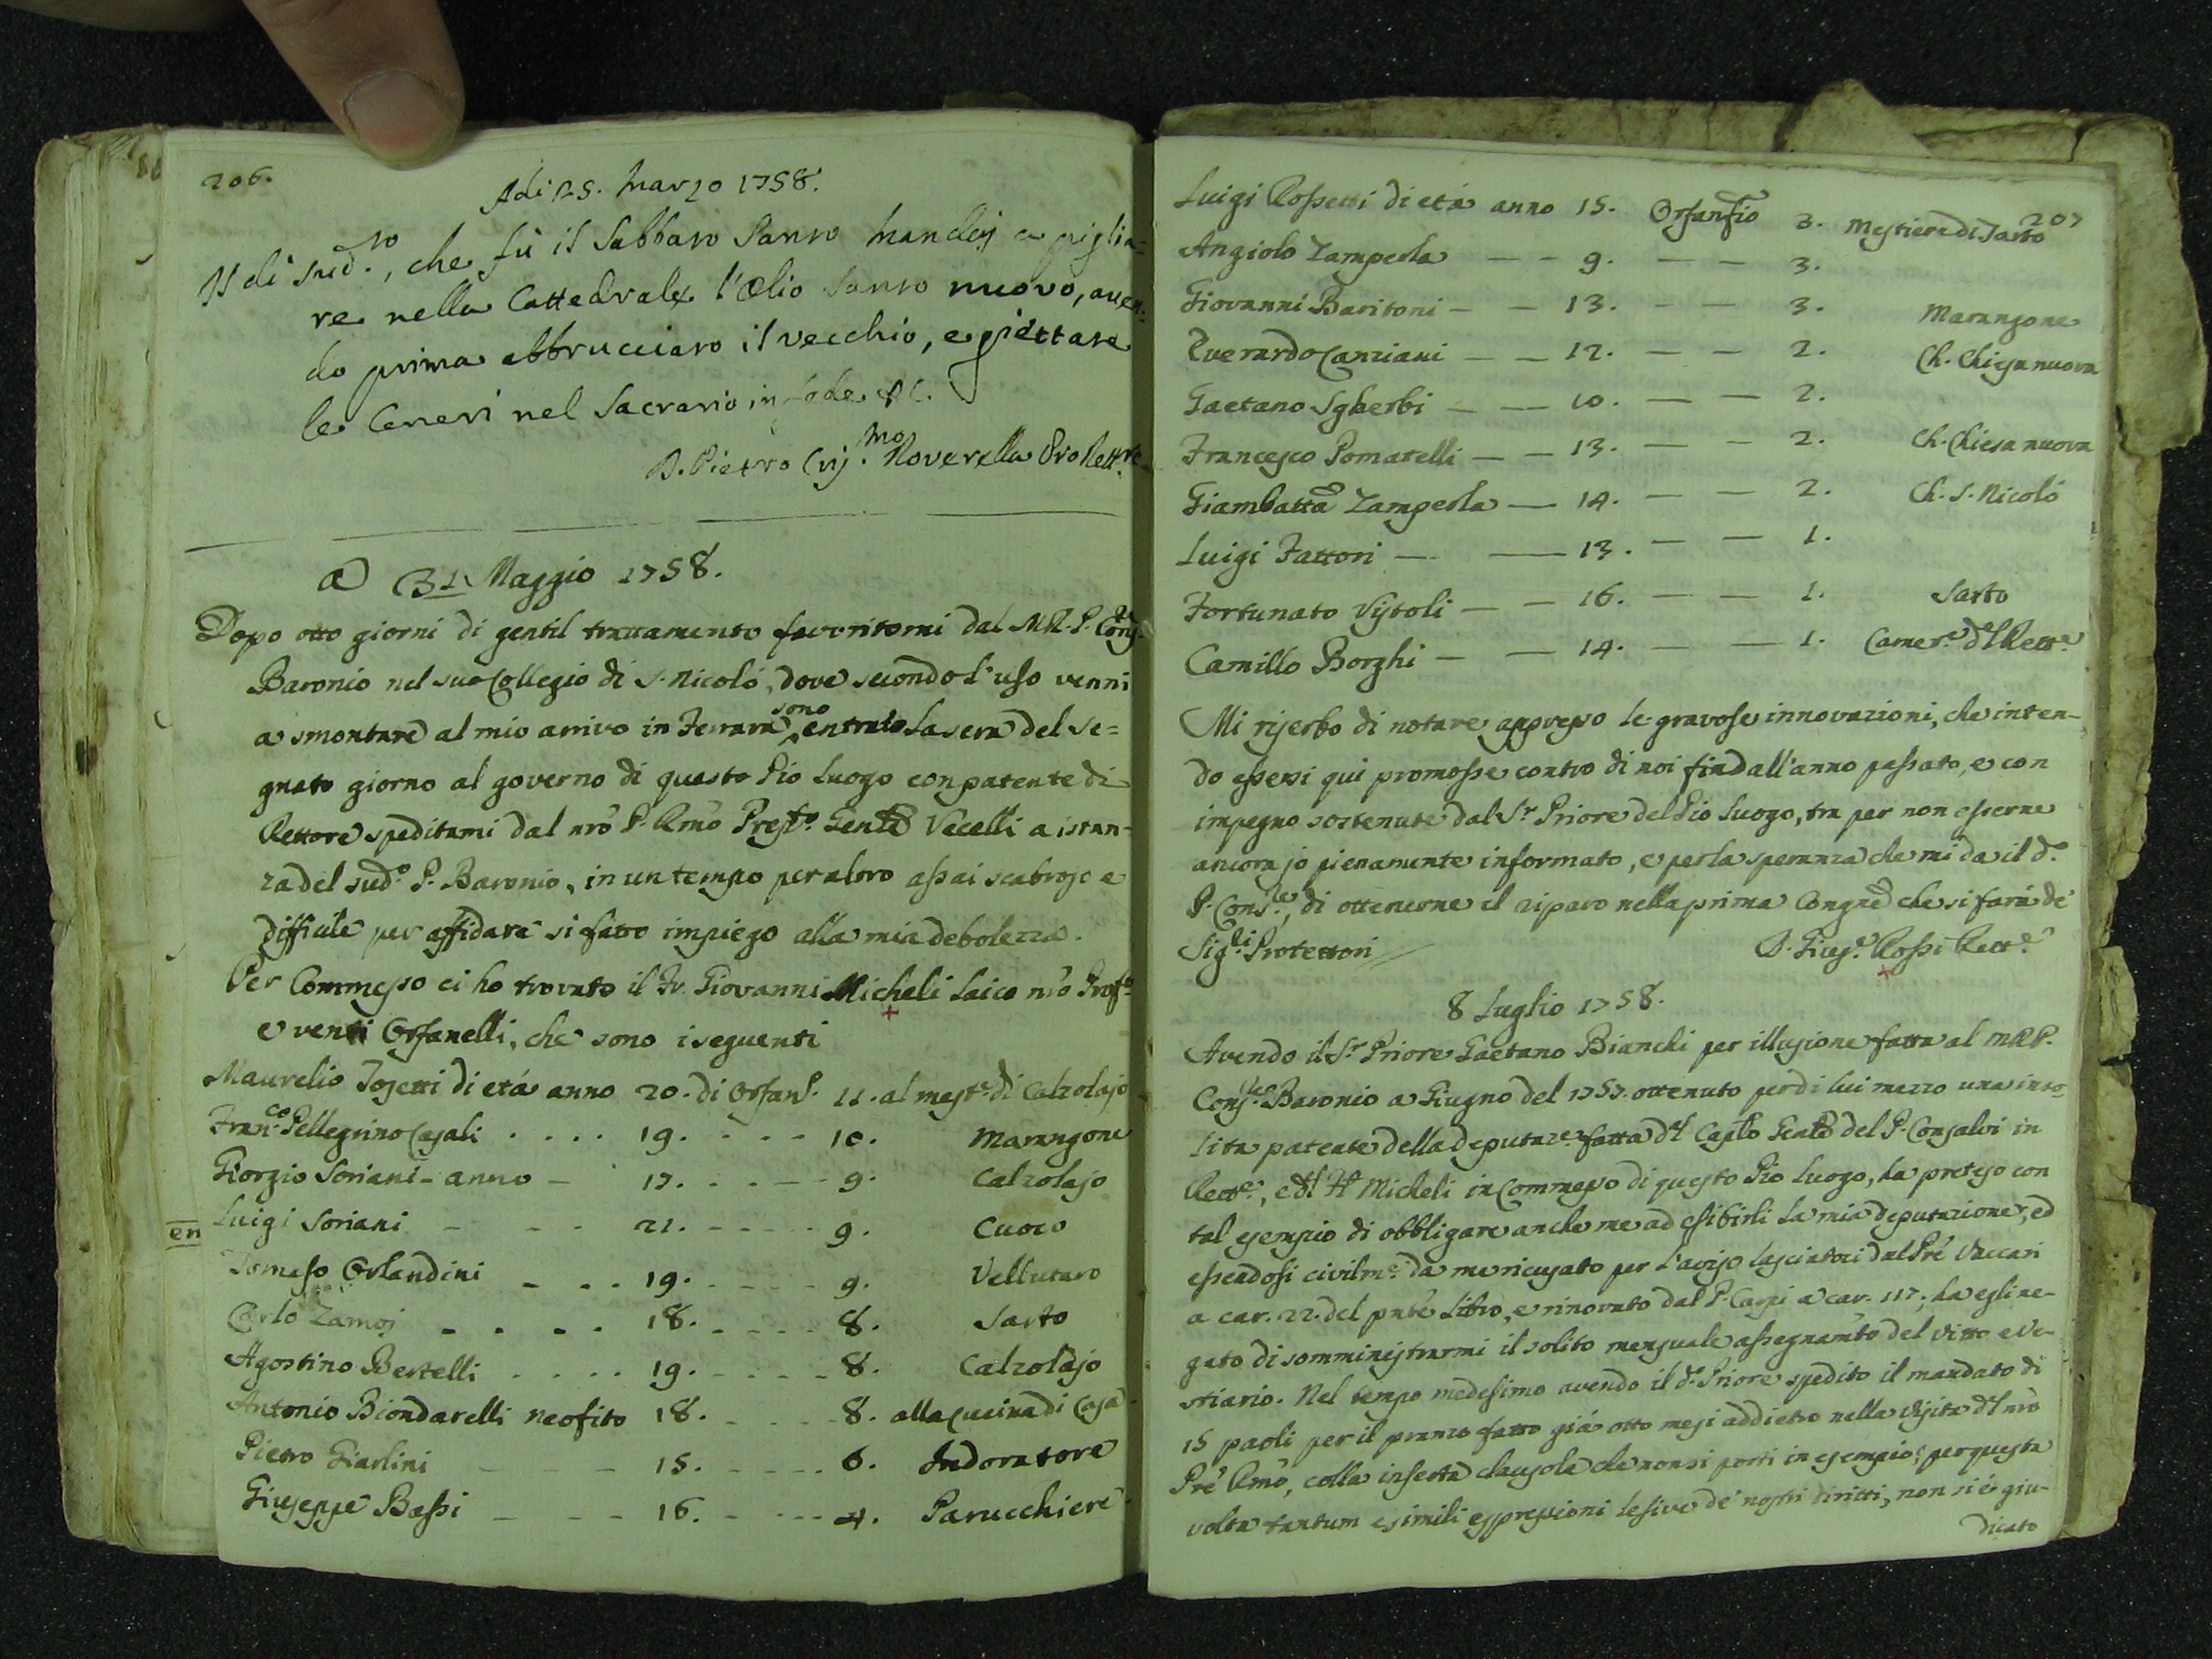 206.
Adi 25. Marzo 1758.
Il di sud.to, che fù il Sabbato Santo mandaj a piglia-
re nella Cattedrale l'Olio Santo nuovo, aven-
do prima abbrucciato il vecchio, e giettare
le Ceneri nel Sacrario in fede &c.
D. Pietro Noverella ProRett.re
A 31 Maggio 1758.
Dopo otto giorni di gentil trattamento favoritomi dal M.R.P. Cons.re
Baronio nel suo Collegio di S. Nicolò, dove secondo l'uso venni
a smontare al mio arrivo in Ferrara, sono entrato la sera del se=
gnato giorno al governo di questo Pio Luogo con patente di
Rettore speditami dal nro P. Rmo Prep.to Genle Vecelli a istan-
za del sud.o P. Baronio, in un tempo per altro assai scabroso e
difficile per affidare si fatto impiego alla mia debolezza.
Per Commesso ci ho trovato il Fr. Giovanni Micheli Laico nro Prof.o
e venti Orfanelli, che sono i seguenti
Maurelio Tosetti di età anno 20. di Orfanf. 11. al mest.e di Calzolajo
Fran.co Pellegrino Casali . . . . 19. - - - - 10. Marangone
Giorgio Soriani - anno - 17. - - - - 9. Calzolajo
Luigi Soriani - - - 21. - - - - 9. Cuoco
en
Tomaso Orlandini - - - 19. - - - - 9. Vellutaro
Carlo Zamoj - - - - 18. - - - - 8. Sarto
Agostino Bertelli . . . . 19. - - - - 8. Calzolajo
Antonio Biondarelli neofito 18. - - - - 8. alla cucina di Casa
Pietro Giarlini - - - 15. - - - - 6. Indoratore
Giuseppe Bassi - - - 16. - - - - 4. Parucchiere
207
Luigi Rossetti di età anno 15. Orfanfio 3. Mestiere di Sarto
Angiolo Zamperla - - 9. - - 3.
Giovanni Baritoni - - 13. - - 3. Marangone
Everardo Canziani - - 12. - - 2. Ch. Chiesa nuova
Gaetano Sgherbi - - 10. - - 2.
Francesco Pomatelli - - 13. - - 2. Ch. Chiesa nuova
Giambatta Zamperla - 14. - - 2. Ch. S. Nicolò
Luigi Fattori - - 13. - - 1.
Fortunato Vistoli - - 16. - - 1. Sarto
Camillo Borghi - - 14. - - 1. Camer.e dl Rett.e
Mi riserbo di notare appresso le gravose innovazioni, che inten-
do essersi qui promosse contro di noi fin dall'anno passato, e con
impegno sostenute dal Sr. Priore del Pio Luogo, tra per non esserne
ancora jo pienamente informato, e per la speranza che mi da il d.o
P. Cons.re, di ottenerne il riparo nella prima Congne che si farà de'
Sig.li Protettori D. Giusp.e Rossi Rett.e
8 Luglio 1758.
Avendo il Sr. Priore Gaetano Bianchi per illusione fatta al M.R.P.
Cons.re Baronio a Giugno del 1757. ottenuto per di lui mezzo una inso-
lita patente della deputaz.e fatta dl Caplo Genle del P. Consalvi in
Rett.e, e dl Fr. Micheli in Commesso di questo Pio Luogo, ha preteso con
tal esempio di obbligare anche me ad esibirli la mia deputazione, ed
essendosi civilm.e da me ricusato per l'aviso lasciatoci dal Pre Vaccari
a car. 22. del pnte Libro, e rinovato dal P. Carpi a car. 117; ha egli ne-
gato di somministrarmi il solito mensuale assegnamto del vitto e ve-
stiario. Nel tempo medesimo avendo il d.o Priore spedito il mandato di
15 paoli per il pranzo fatto già otto mesi addietro nella visita dl nro
Pre Rmo, colla inserta clausola che non si porti in esempio; per questa
volta tantum e simili espressioni lesive de' nostri diritti, non si è giu-
dicato